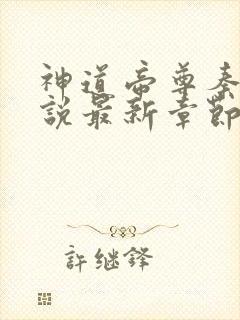 神道帝尊秦
說最新章節
許継鋒